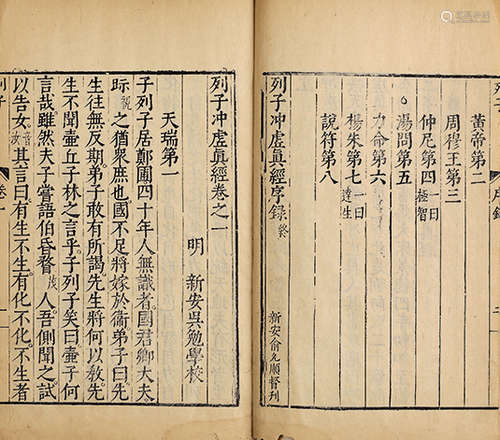 黃帝第二
周穆王第三
仲尼第四 一曰極智
湯問第五
力命第六
楊朱第七 一曰達生
說符第八
列子冲虛眞經序錄 終
新安俞允順督刋
列子冲虛眞經卷之一
明 新安吳勉學校
天瑞第一
子列子居鄭圃四十年人無識者國君卿大夫
眎之猶衆庶也國不足將嫁於衞弟子曰先
生往無反期弟子敢有所謁先生將何以敎先
生不聞壷丘子林之言乎子列子笑曰壷子何
言哉雖然夫子嘗語伯昏瞀人吾側聞之試
以告女其言曰有生不生有化不化不生者
列子
卷一